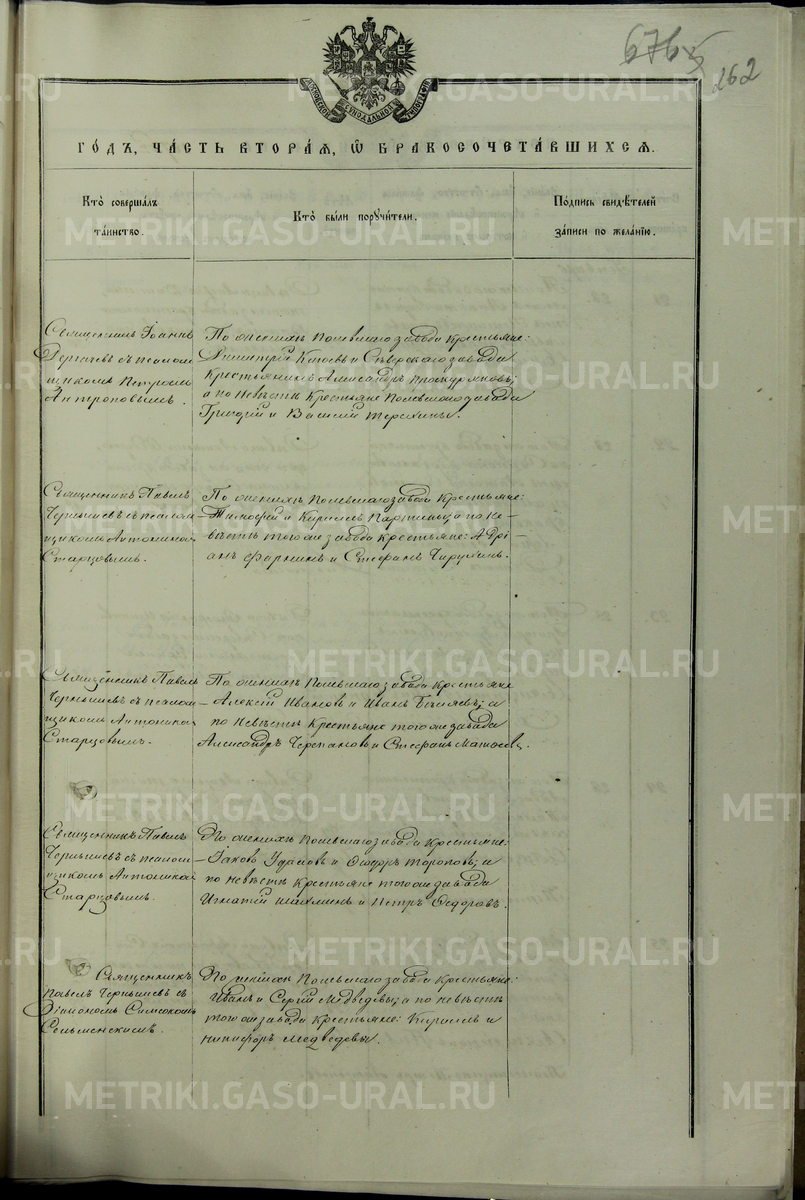 676
262
МОСКОВСКОЙ СѴНОДАЛЬНОЙ ТИПОГРАФIИ
ГО́ДЪ, ЧА́СТЬ ВТОРА́Я, Ѽ БРАКОСОЧЕТА́ВШИХСЯ.
Кто̀ соверша́лъ
та́инство.
Кто̀ бы́ли порꙋчи́тели.
По́дпись свидѣ́телей
за́писи по жела́нїю.
Священникъ Іоаннъ
съ псалом
щикомъ Петромъ
Антроповымъ.
По женихѣ Полевскаго завода крестьяне:
Димитрій и Сѣверскаго завода
крестьянинъ Александръ
а по невѣстѣ крестьяне Полевского завода
Григорій и Василій
Священникъ Павелъ
Чернышевъ съ псалом
щикомъ Антониномъ
Старцовымъ.
По женихѣ Полевскаго завода крестьяне:
Тимофей и Кириллъ а по не-
вѣстѣ того же завода крестьяне: Адрі-
анъ и Стефанъ
Священникъ Павелъ
Чернышевъ съ псалом
щикомъ Антониномъ
Старцовымъ.
По женихѣ Полевскаго завода крестьяне
Алексѣй Ивановъ и Иванъ Бѣляевъ; а
по невѣстѣ крестьяне того же завода
Александръ Черепановъ и Стефанъ
Священникъ Павелъ
Чернышевъ съ псалом
щикомъ Антониномъ
Старцовымъ.
По женихѣ Полевскаго завода крестьяне:
Іаковъ и Ѳедоръ Тороповъ; а
по невѣстѣ крестьяне того же завода
Игнатій Шахминъ и Петръ Ѳедоровъ.
Священникъ
Павелъ Чернышевъ съ
діакономъ Симеономъ
По женихѣ Полевскаго завода крестьяне:
Иванъ и Сергій Медведевы; а по невѣстѣ
того же завода крестьяне: Кириллъ и
Никифоръ Медведевы.
METRIKI.GASO-URAL.RU